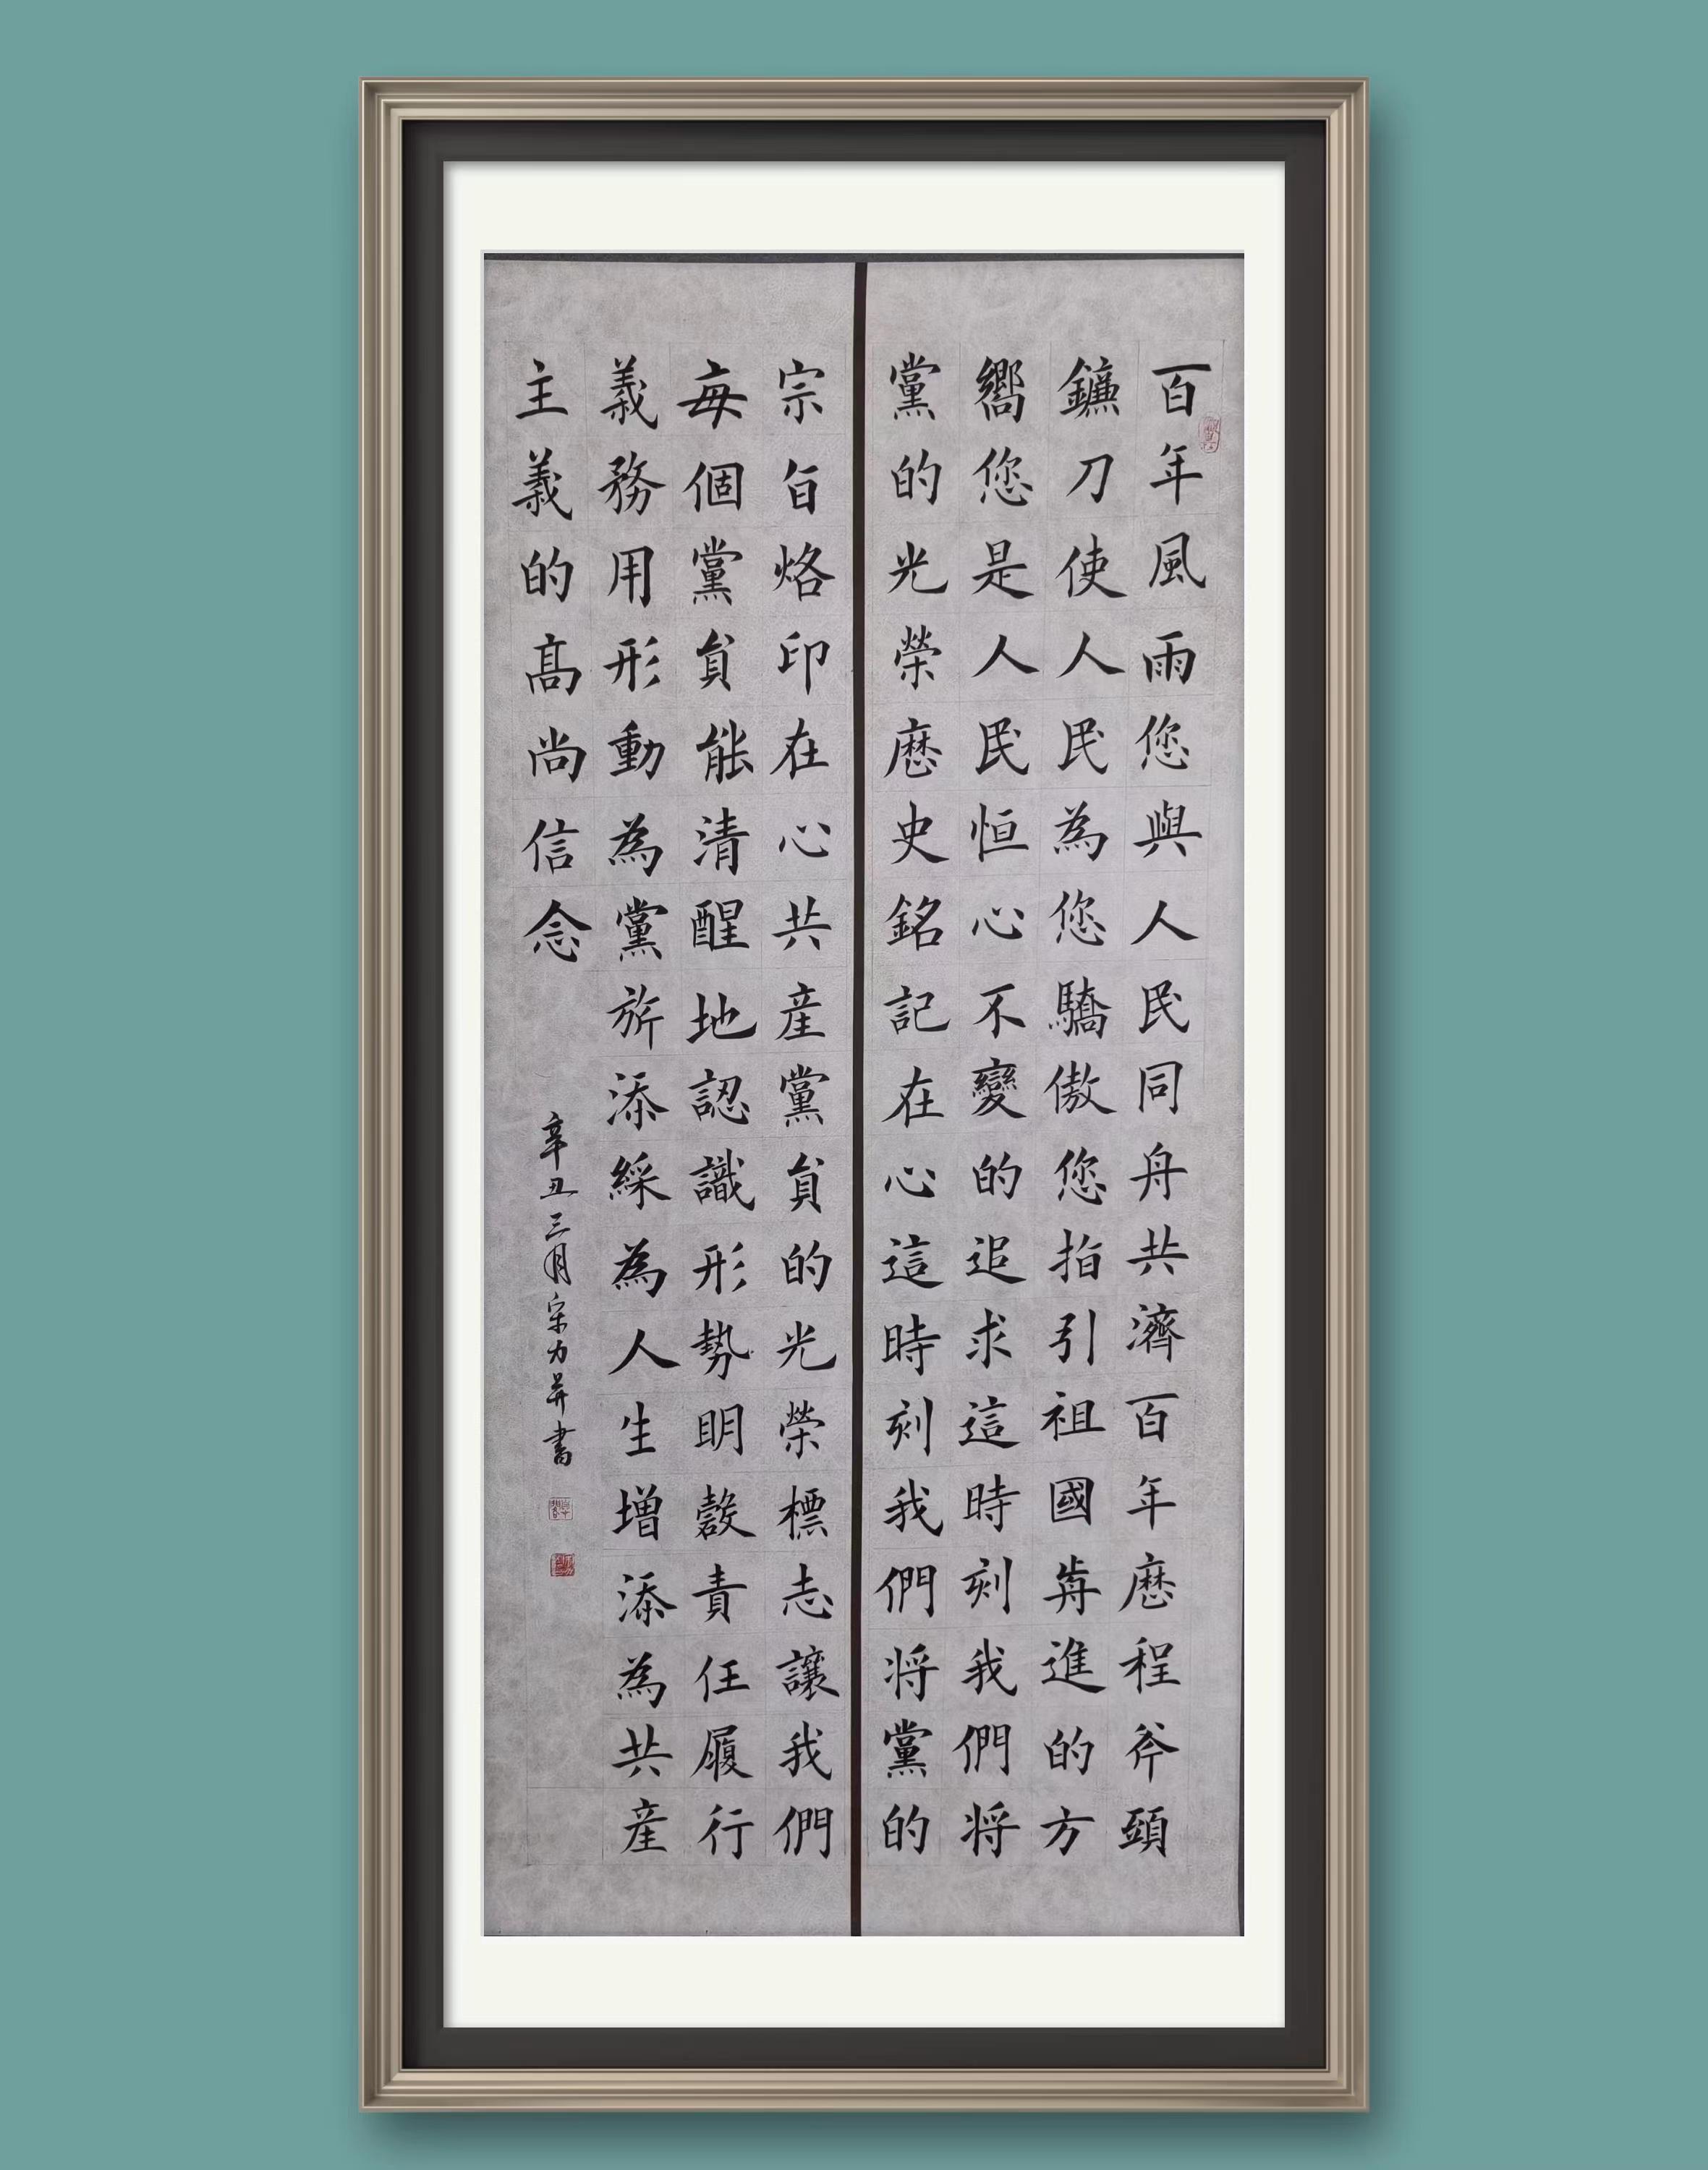 百年風雨您與人民同舟共濟百年歷程斧頭
鐮刀使人民為您驕傲您指引祖國前進的方
嚮您是人民恒心不變的追求這時刻我們将
黨的光榮歷史銘記在心這時刻我們将黨的
宗旨烙印在心共産黨員的光榮標志讓我們
每個黨員能清醒地認識形勢明發責任履行
義務用形動為黨旂添綵為人生增添為共産
主義的高尚信念
辛丑三月宋力并書